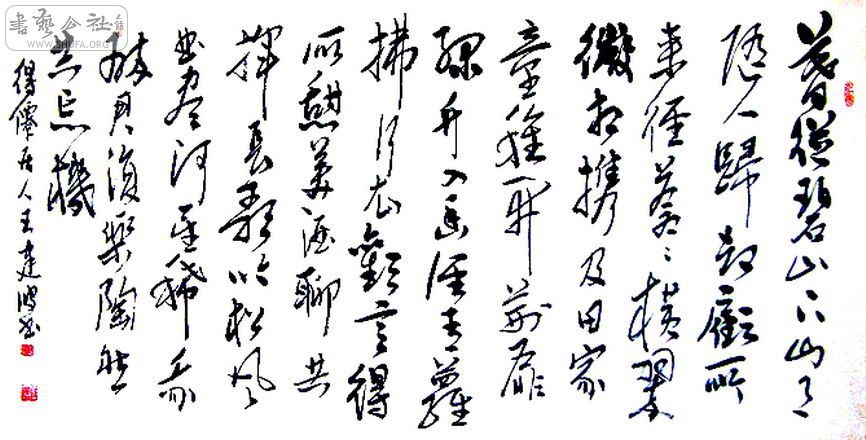 暮從碧山下山月
随人歸却顧所
来徑蒼〻橫翠
微相携及田家
童稚開荆扉
綠竹入幽徑青蘿
拂行衣歡言得
所憩美酒聊共
揮長歌吟松风
曲盡河星稀我
醉君復樂陶然
共忘機
得僊居人王建波书
書藝公社
WWW.SHUFA.ORG